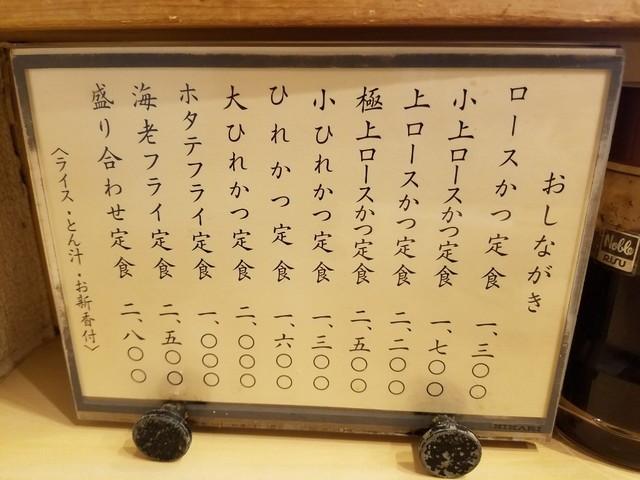 おしながき
ロースかつ定食 一、三〇〇
小上ロースかつ定食 一、七〇〇
上ロースかつ定食 二、二〇〇
極上ロースかつ定食 二、五〇〇
小ひれかつ定食 一、三〇〇
ひれかつ定食 一、六〇〇
大ひれかつ定食 二、〇〇〇
ホタテフライ定食 一、〇〇〇
海老フライ定食 二、五〇〇
盛り合わせ定食 二、八〇〇
〈ライス・とん汁・お新香付〉
HIKARI
Noble
RISU